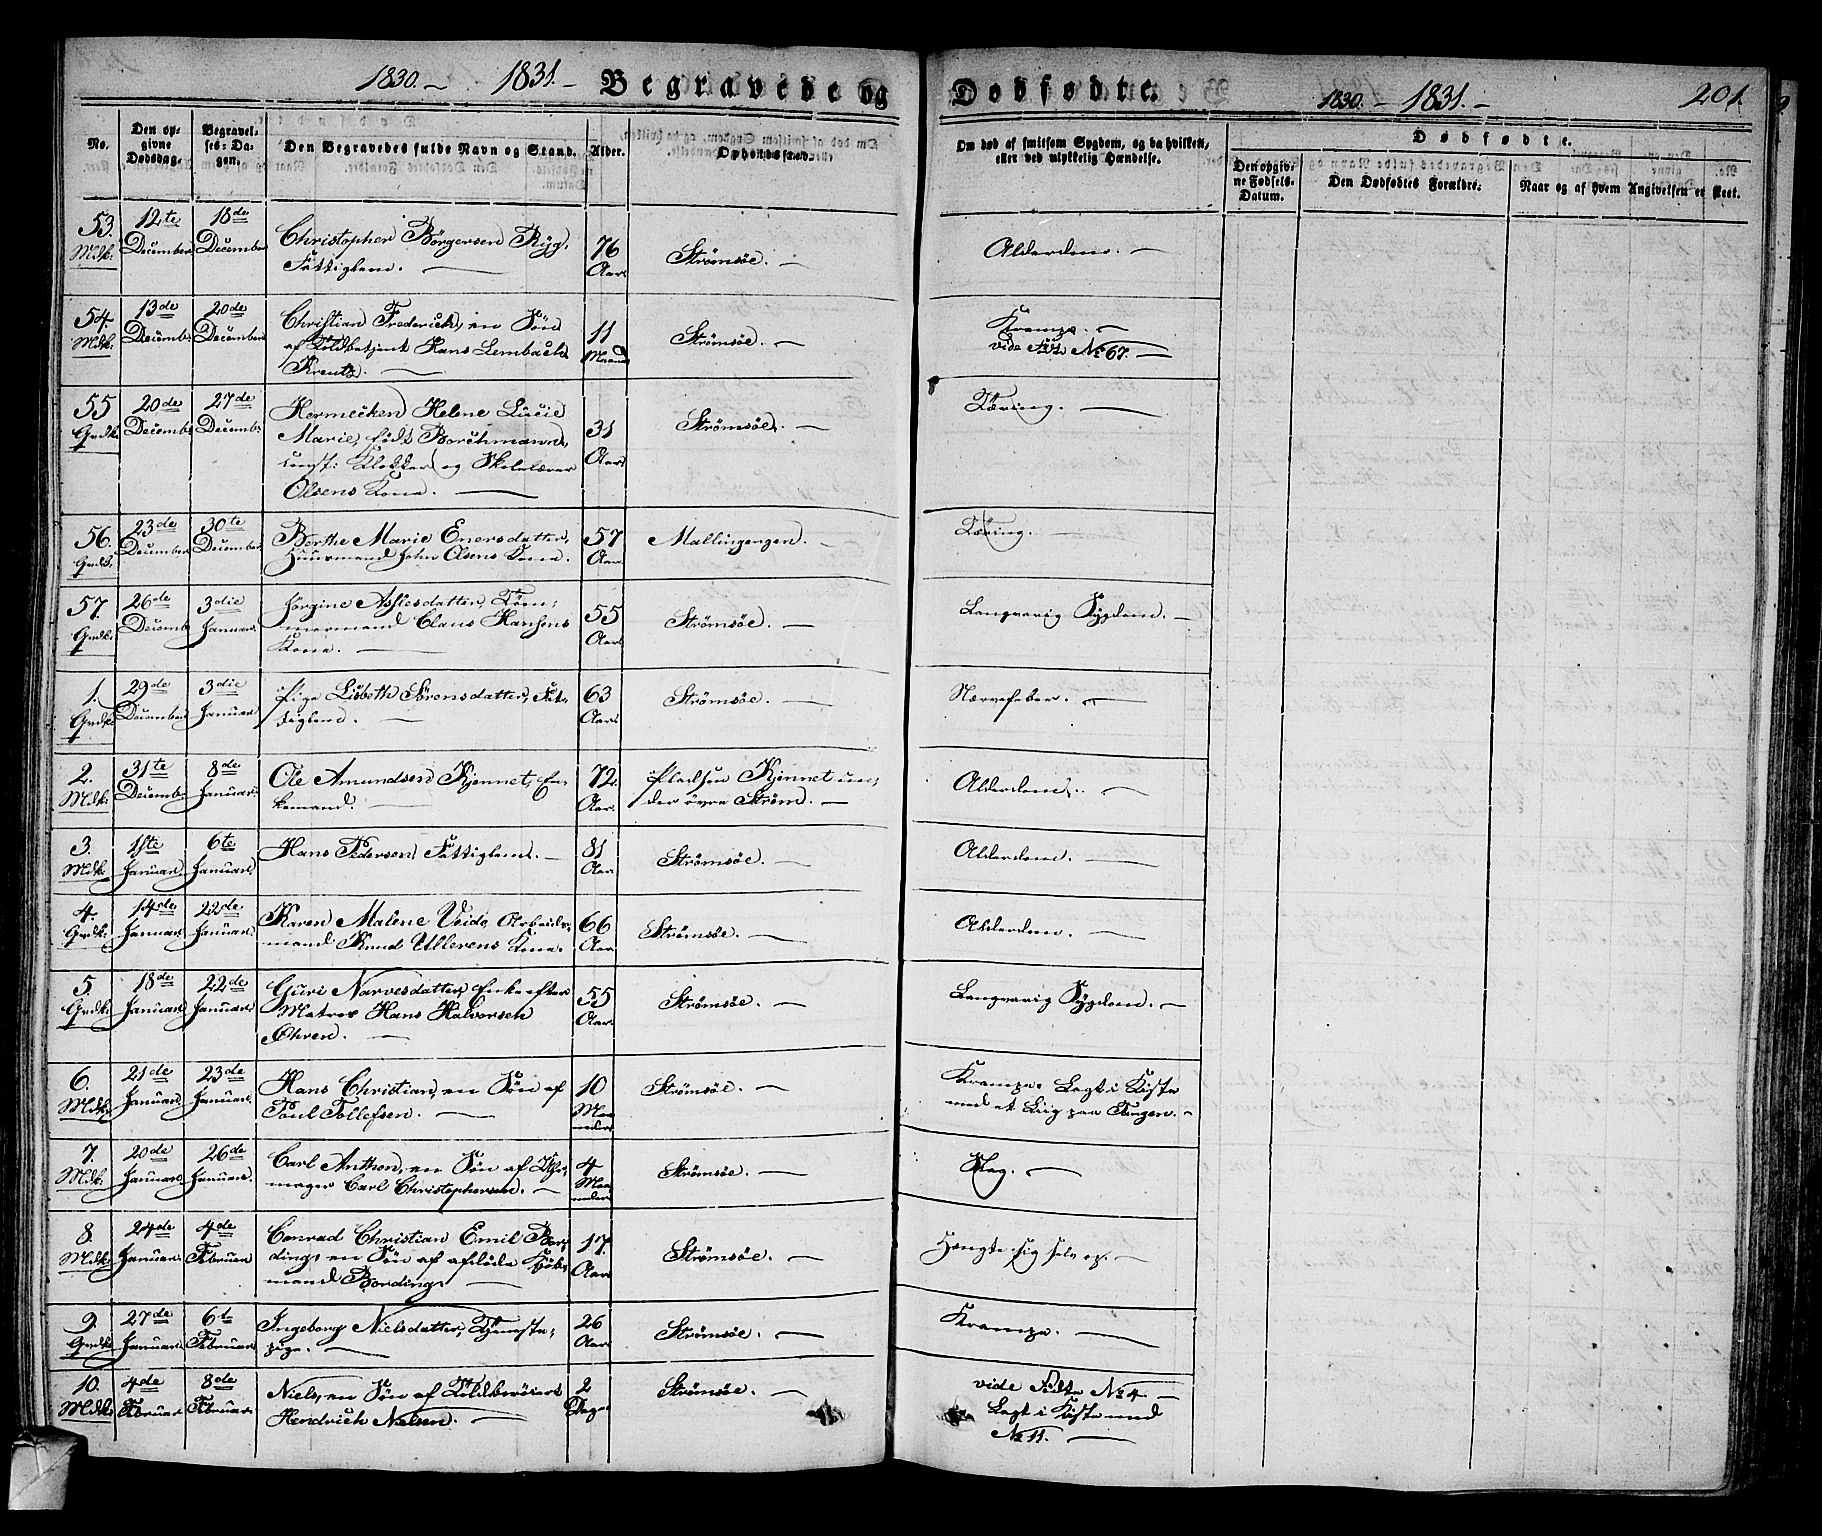 1830. - 1831. - Begravede og
Dødfødte. 1830. - 1831. - 201.
No.
Den opgivne Dødsdag.
Begravelses-Dagen.
Den Begravedes fulde Navn og Stand.
Alder.
Opholdssted.
Om død af smitsom Sygdom, og da hvilken,
eller ved ulykkelig Hændelse.
Dødfødte.
Den opgivne Fødsels-Datum.
Den Dødfødtes Forældre.
Naar og af hvem Angivelsen er skeet.
53. 12te 18de Christopher Börgersen Ryg,
Mdk: December December Fattiglem. - 76 Aar Strømsøe. - Alderdom. -
54. 13de 20de Christian Frederick, en Søn
Mdk: December December af Toldbetjent Hans Lembach
Krentz. - 11 Maaned Strømsøe. - Krampe. -
vide No 67. -
55 20de 27de Helene Lucie
Qvdk: Decemb: Decemb: Marie, født Borchmann,
const: Klokker og Skolelærer
Olsens Kone. - 31 Aar Strømsøe. - Tæring. -
56. 23de 30te Berthe Marie Enersdatter,
Qvdk: December December Huusmand John Olsens Kone. 57 Aar Mallingengen. - Tæring. -
57. 26de 3die Jørgine Aslesdatter, Tøm-
Qvdk: Decemb Januar. mermand Claus Hansens
Kone. - 55 Aar Strømsøe. - Langvarig Sygdom. -
1. 29de 3die Pige Lisbeth Sørensdatter, Fat-
Qvdk: December Januar. tiglem. - 63 Aar Strømsøe. - Nærvefeber. -
2. 31te 8de Ole Amundsen Kjennet, En-
Mdk: Decemb: Januar. kemand. - 72 Aar Pladsen Kjennet un-
der övre Strøm. - Alderdom. -
3. 1ste 6te Hans Pedersen, Fattiglem. -
Mdk: Januar. Januar. 81 Aar Strømsøe. - Alderdom. -
4. 14de 22de Karen Malene Veide, Arbeids-
Qvdk: Januar. Januar. mand Knud Ullerens Kone. 66 Aar Strømsøe. - Alderdom. -
5 18de 22de Guri Narvesdatter, Enke efter
Qvdk: Januar. Januar. Matros Hans Halvorsen
Ohren. - 55 Aar Strømsøe. - Langvarig Sygdom. -
6. 21de 23de Hans Christian, en Søn af
Mdk: Januar. Januar. Poul Tollefsen. - 10 Maaneder Strømsøe. - Krampe. Lagt i Kiste
med et Liig paa Tangen. -
7. 20de 26de Carl Anthon, en Søn af
Mdk: Januar. Januar. mager Carl Christophersen. - 4 Maaneder Strømsøe. - Slag. -
8. 24de 4de Conrad Christian Emil Bor-
Mdk: Januar. Februar ding, en Søn af afdøde Kjøb-
mand Bording. 17. Aar Strømsøe. - Hængte sig selv op. -
9. 27de 6te Ingeborg Nielsdatter, Tjeneste-
Qvdk Januar. Februar pige. - 26 Aar Strømsøe. - Krampe. -
10. 4de 8de Niels, en Søn af Toldkarosiers
Mdk: Februar Februar. Hendrich Nielsen. - 2 Dage Strømsøe. - vide Fødte No 4. -
Lagt i Kiste med
No 11. -